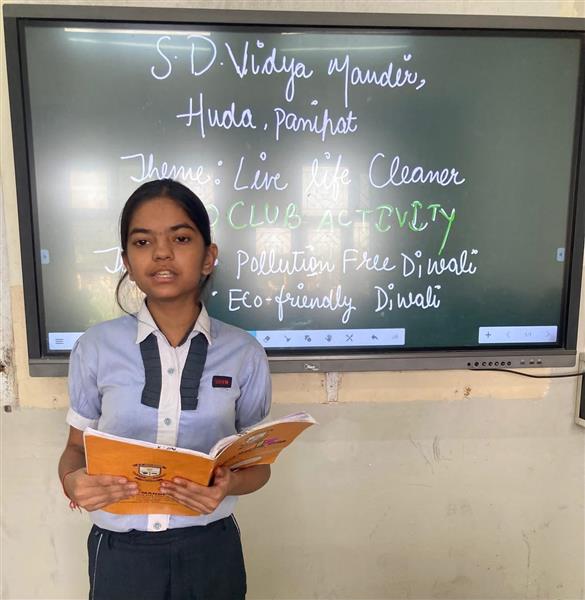 S.D. Vidya Mander,
Huda, Panipat
Theme: Live life Cleaner
CLUB ACTIVITY
Pollution Free Diwali
Eco-friendly Diwali